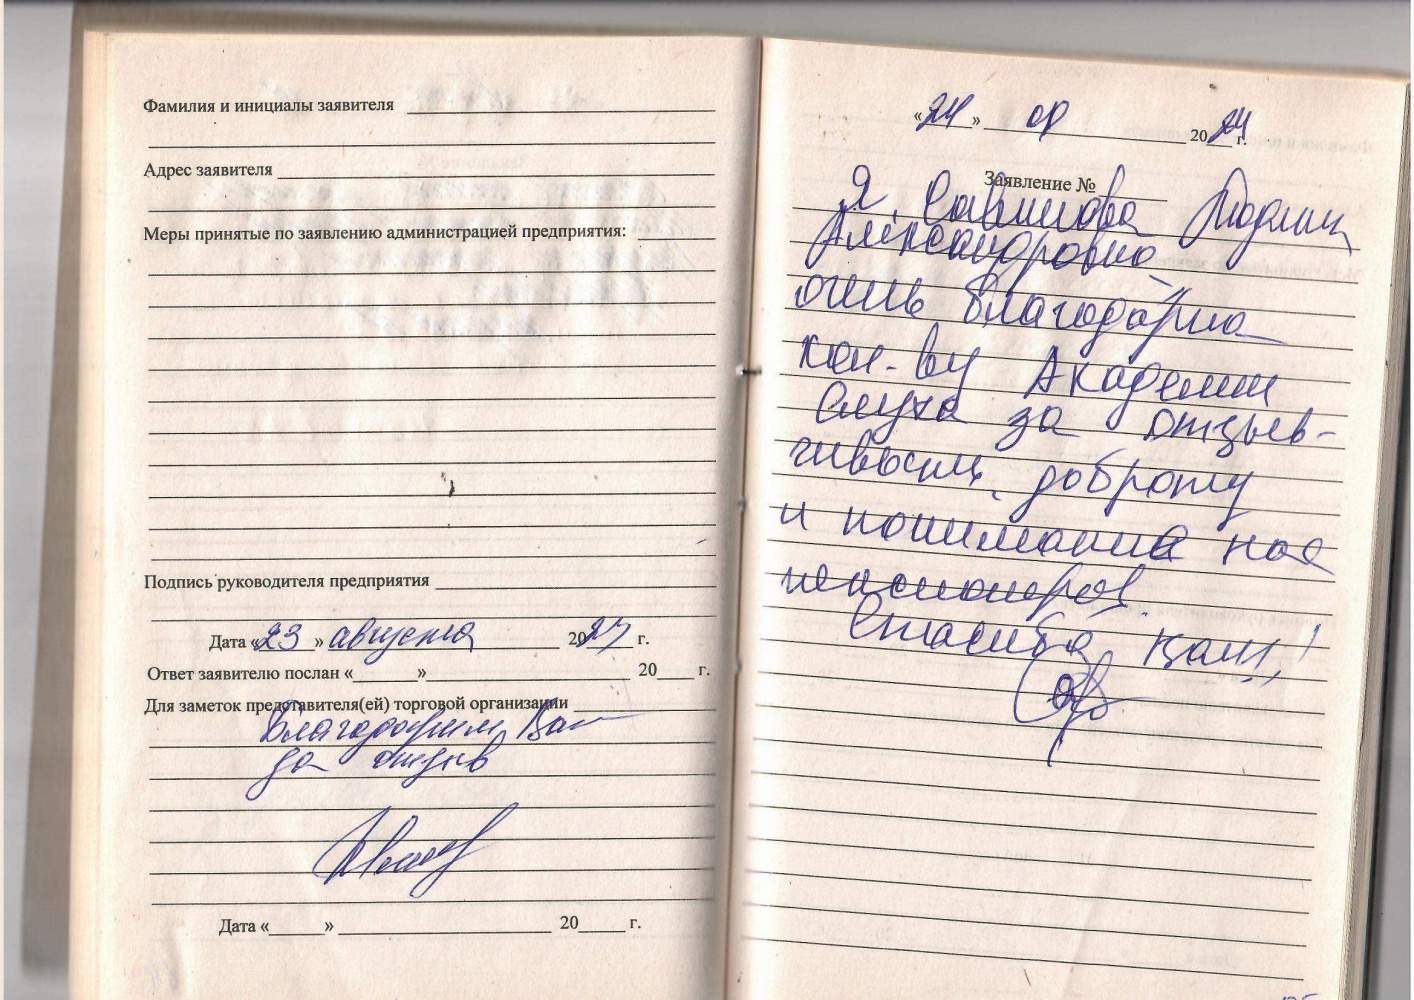 Фамилия и инициалы заявителя
Адрес заявителя
Меры принятые по заявлению администрацией предприятия:
Подпись руководителя предприятия
Дата «23» августа 2024 г.
Ответ заявителю послан «» 20 г.
Для заметок представителя(ей) торговой организации
Благодарим Вас
за отзыв
Дата «» 20 г.
«24» 08 2024 г.
Заявление №
Я, Савинова
Александровна
очень благодарна
кол-ву Академии
Слуха за отзыв-
чивость, доброту
и понимание нас
пенсионеров
Спасибо Вам!